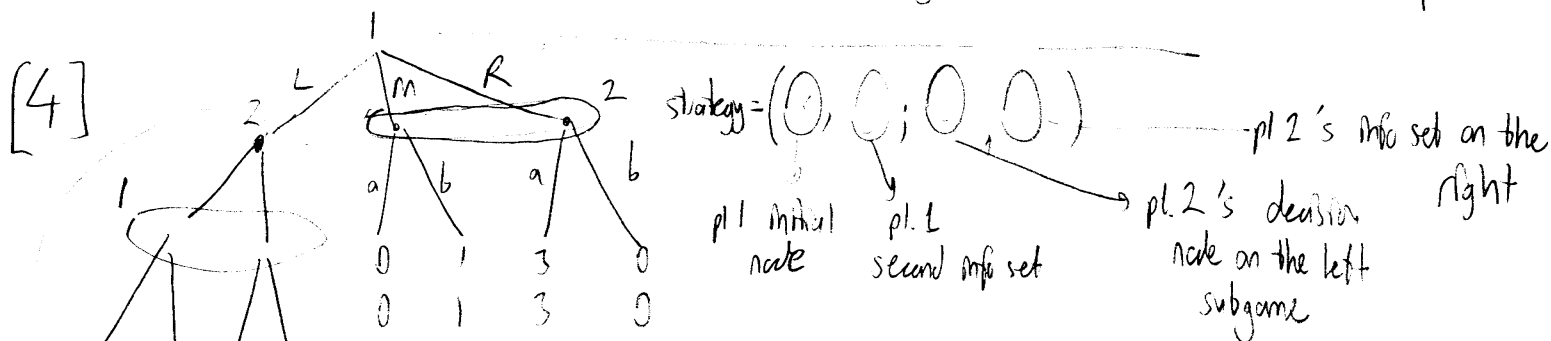 [4]
1
L
M
R
2
2
1
a
b
a
b
0 1 3 0
0 1 3 0
strategy = (0, 0; 0, 0)
pl 1 initial
node
pl. 1
second info set
pl. 2's decision
node on the left
subgame
pl 2's info set on the
right